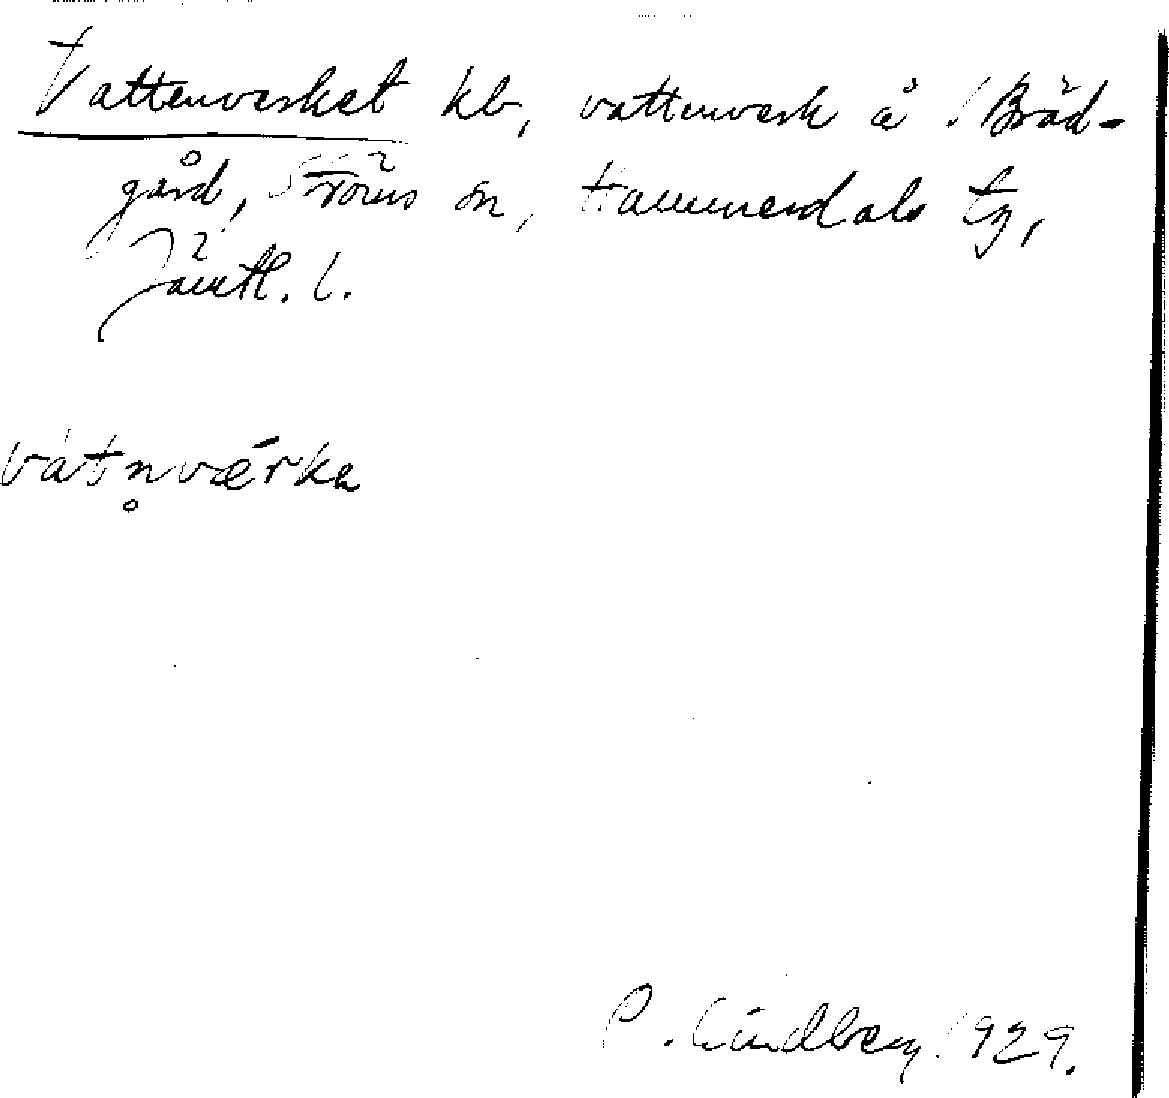 Vattenverket kb, vattenverk å Bräd-
gård, Ströms sn, Hammerdals tg,
Jämtl. l.
vátn̥værka
P. Lindberg 1929.